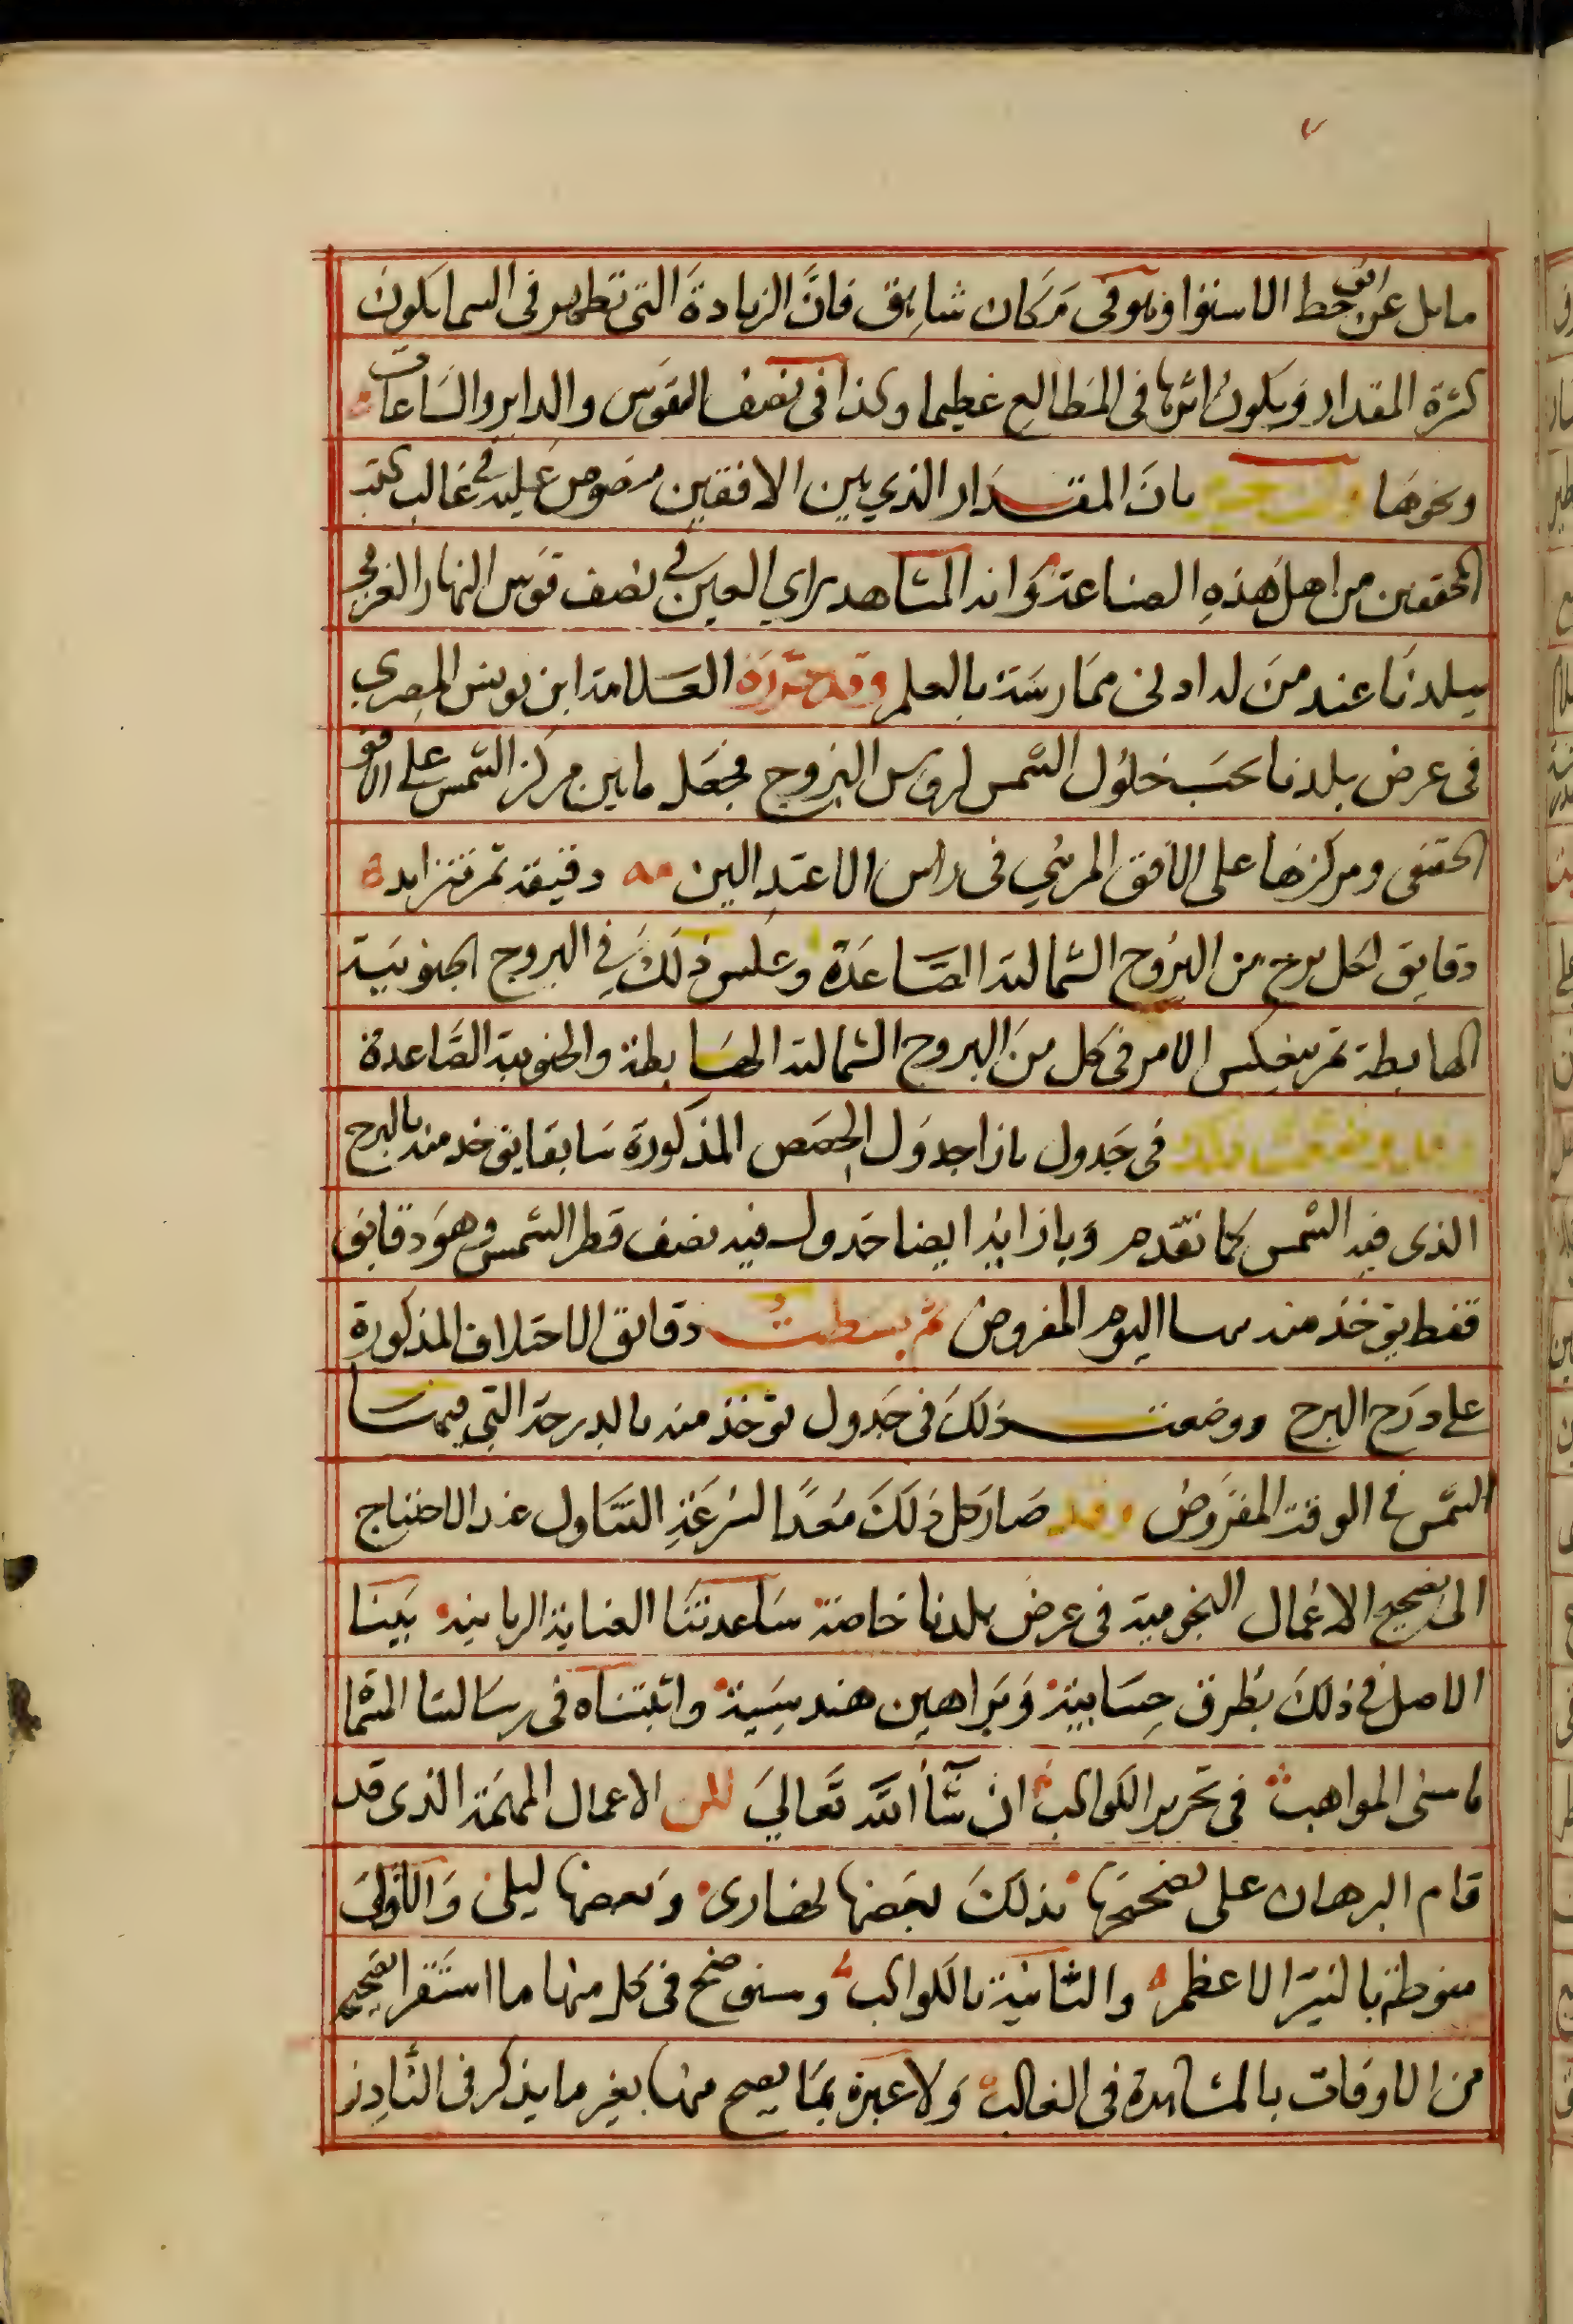 ٧
مايل عن افق خط الاستوا وهو فى مكان شاهق فانَّ الزيادة التى تظهر فى السما يكون
كثرة المقدار ويكون اثرها فى المطالع عظيما وكذا فى نصف القوس والداير والساعات
ونحوها بان المقدار الذي بين الافقين منصوص عليه فى غالب كتب
المحققين من اهل هذه الصناعة وانه المشاهد براي العين في نصف قوس النهار الغربى
ببلدنا عند من له ادنى ممارسة بالعلم وقد حرره العلامة ابن يونس المصري
فى عرض بلدنا بحسب حلول الشمس لروس البروج فجعل ما بين مركز الشمس على الافق
الحقيقى ومركزها على الافق المرئي فى راس الاعتدالين مه دقيقة ثم تتزايد ة
دقايق لكل برج من البروج الشمالية الصاعدة وعكس ذلك في البروج الجنوبية
الهابطة ثم ينعكس الامر فى كل من البروج الشمالية الهابطة والجنوبية الصاعدة
وقد وضعت ذلك فى جدول بازا جدول الحصص المذكورة سابقا يوخذ منه بالبرج
الذى فيه الشمس كما تقدم وبازايه ايضا جدول فيه نصف قطر الشمس وهو دقايق
فقط يوخذ منه اليوم المفروض ثم بسطت دقايق الاختلاف المذكورة
على درج البرج ووضعت ذلك فى جدول يوخذ منه بالدرجة التي فيها
الشمس في الوقت المفروض وقد صار كل ذلك مُعدًا لسرعة التناول عند الاحتياج
الى تصحيح الاعمال النجومية فى عرض بلدنا خاصة ساعدتنا العناية الربانية بينا
الاصل في ذلك بطرق حسابية وبراهين هندسية واثبتناه فى رسالتنا المسماه
باسنى المواهب فى تحرير الكواكب ان شآ الله تعالي الاعمال المهمة الذى قد
قام البرهان على تصحيحها بذلك بعضها نهارى وبعضها ليلى والاولى
منوطة بالنير الاعظم والثانية بالكواكب وسنوضح فى كل منها ما استقر تصحيحه
من الاوقات بالمشاهدة فى الغالب ولا عبرة بما يصح منها بغير ما يذكر فى النادر